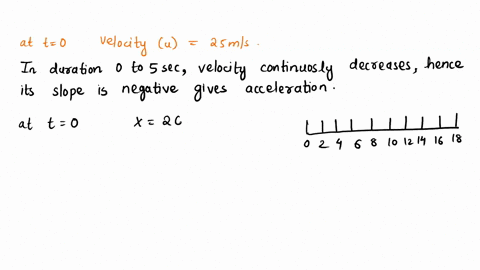 at t=0 velocity (u) = 25m/s.
In duration 0 to 5 sec, velocity continuosly decreases, hence
its slope is negative gives acceleration.
at t=0 x = 20
0 2 4 6 8 10 12 14 16 18